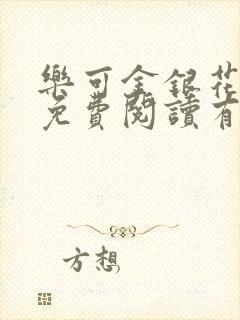 樂可金銀花
免費閱讀有
方想